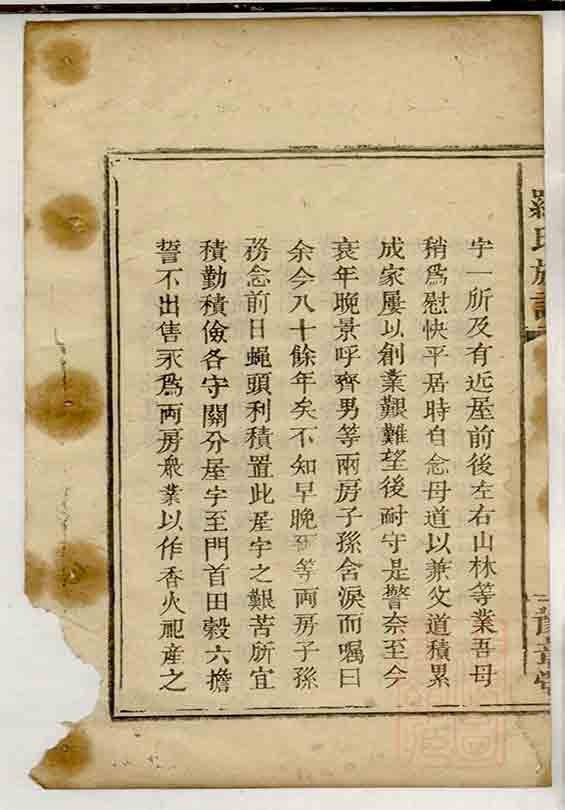 羅氏族譜
豫章堂
宇一所及有近屋前後左右山林等業吾母
稍爲慰快平居時自念母道以兼父道積累
成家屢以創業艱難望後耐守是警奈至今
衰年晚景呼齊男等兩房子孫含淚而囑曰
余今八十餘年矣不知早晚爾等兩房子孫
務念前日蝇頭利積置此屋宇之艱苦所宜
積勤積儉各守鬮分屋宇至門首田穀六擔
誓不出售永爲兩房衆業以作香火祀産之